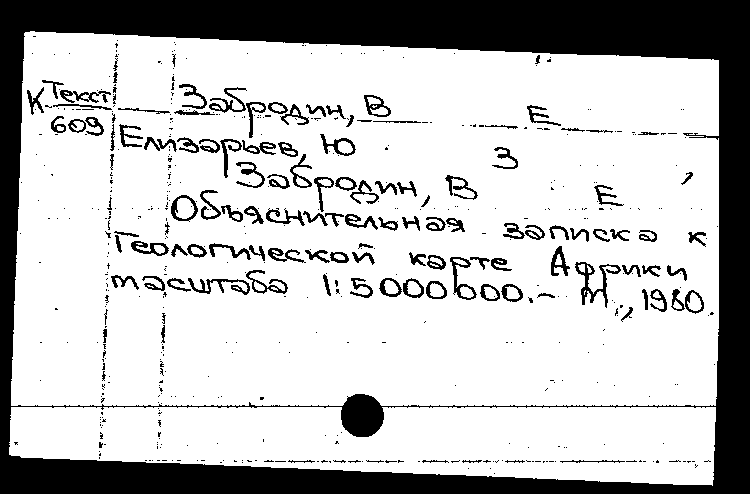 К Текст
609
Забродин, В Е
Елизарьев, Ю З
Забродин, В Е
Объяснительная записка к
Геологической карте Африки
масштаба 1:5000000.- М., 1980.